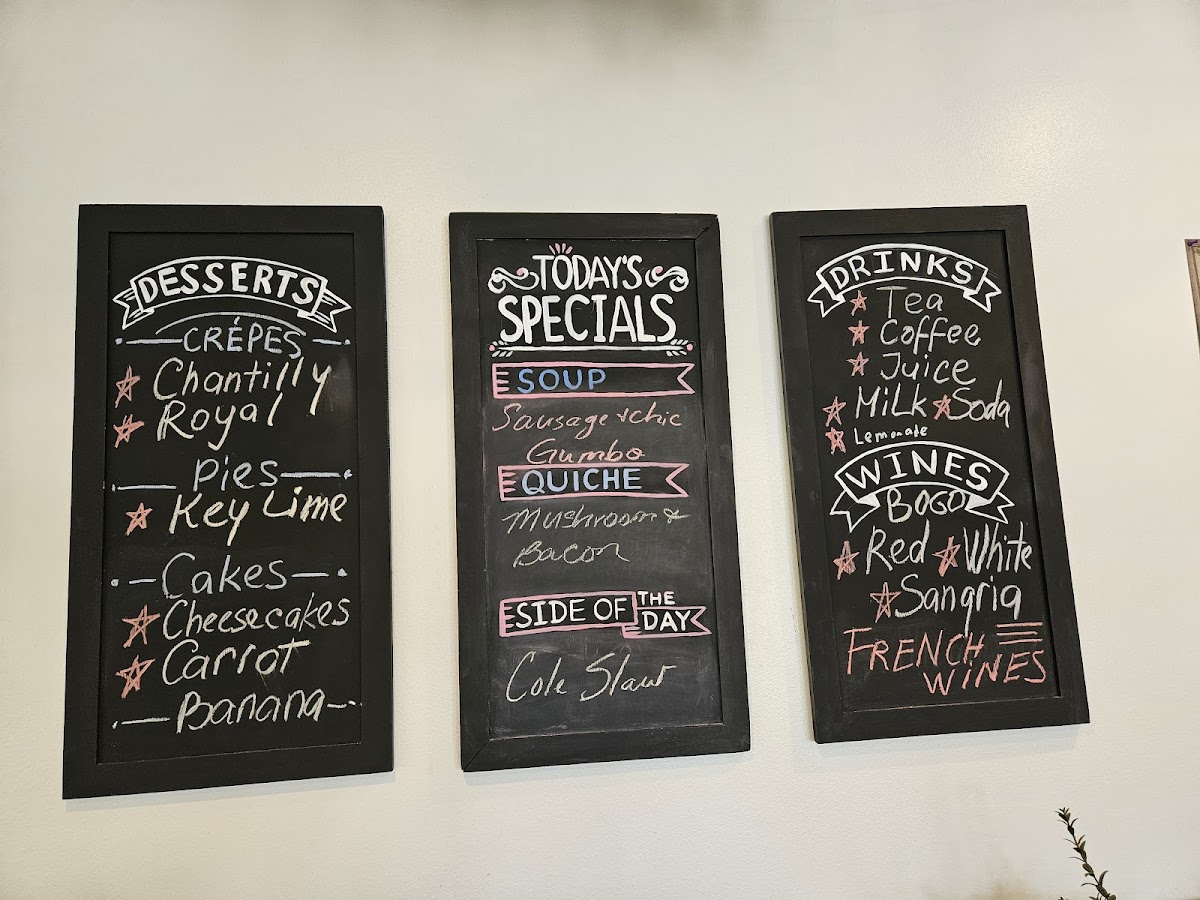 DESSERTS
CRÉPES
Chantilly
Royal
Pies
Key Lime
Cakes
Cheesecakes
Carrot
Banana
TODAY'S
SPECIALS
SOUP
Sausage + chic
Gumbo
QUICHE
Mushroom &
Bacon
SIDE OF THE DAY
Cole Slaw
DRINKS
Tea
Coffee
Juice
Milk Soda
Lemonade
WINES
BOGO
Red White
Sangria
FRENCH
WINES